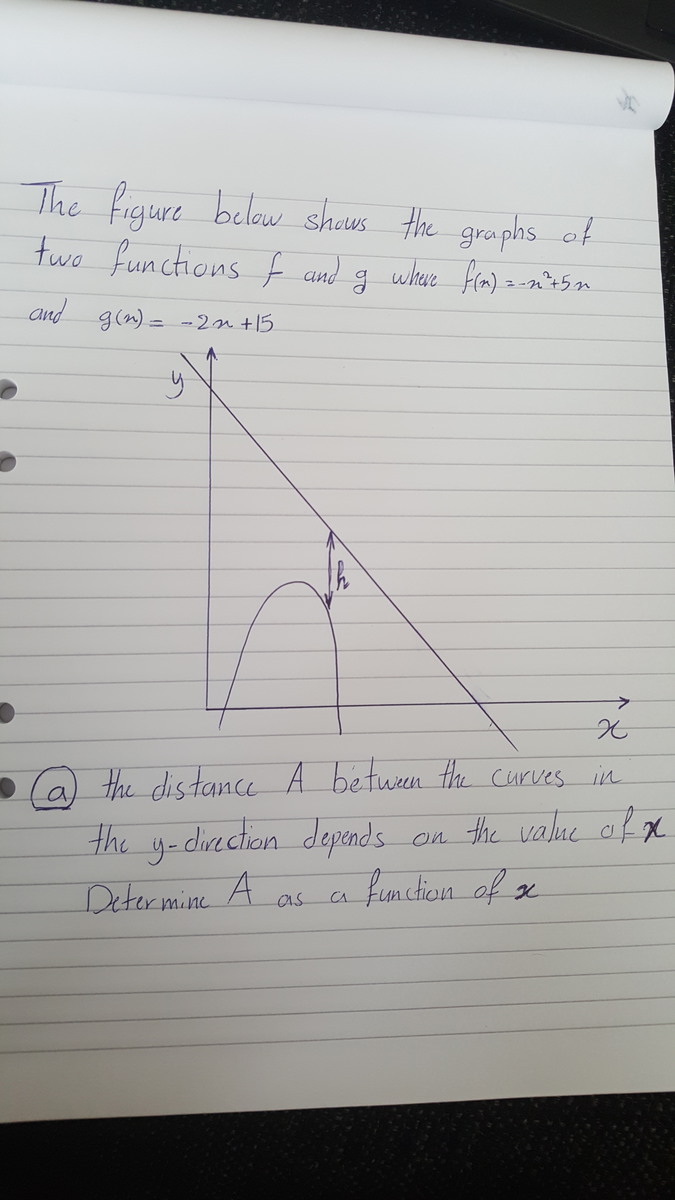 The figure below shows the graphs of
two functions f and g where f(x) = -x²+5x
and g(x) = -2x+15
y
h
x
(a) the distance A between the curves in
the y-direction depends on the value of x
Determine A as a function of x